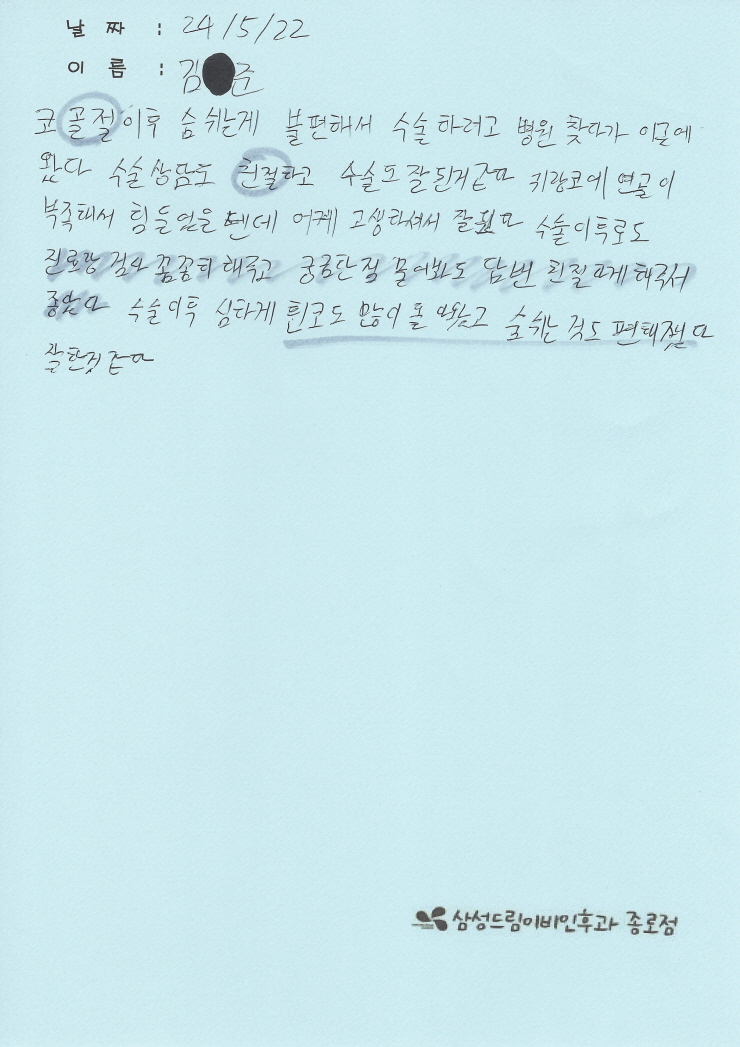 날 짜 : 24/5/22
이 름 : 김 준
코 골절이후 숨쉬는게 불편해서 수술하려고 병원 찾다가 이곳에
왔다 수술상담도 친절하고 수술도 잘된거같다 귀랑코에 연골이
부족해서 힘들었을텐데 어케 고생하셔서 잘됐다 수술이후로도
진료랑 검사 꼼꼼히해주고 궁금한점 물어봐도 답변 친절하게해주셔서
좋았다 수술이후 심하게 휜코도 많이 돌아왔고 숨쉬는것도 편해졌다
잘한것같다
삼성드림이비인후과 종로점